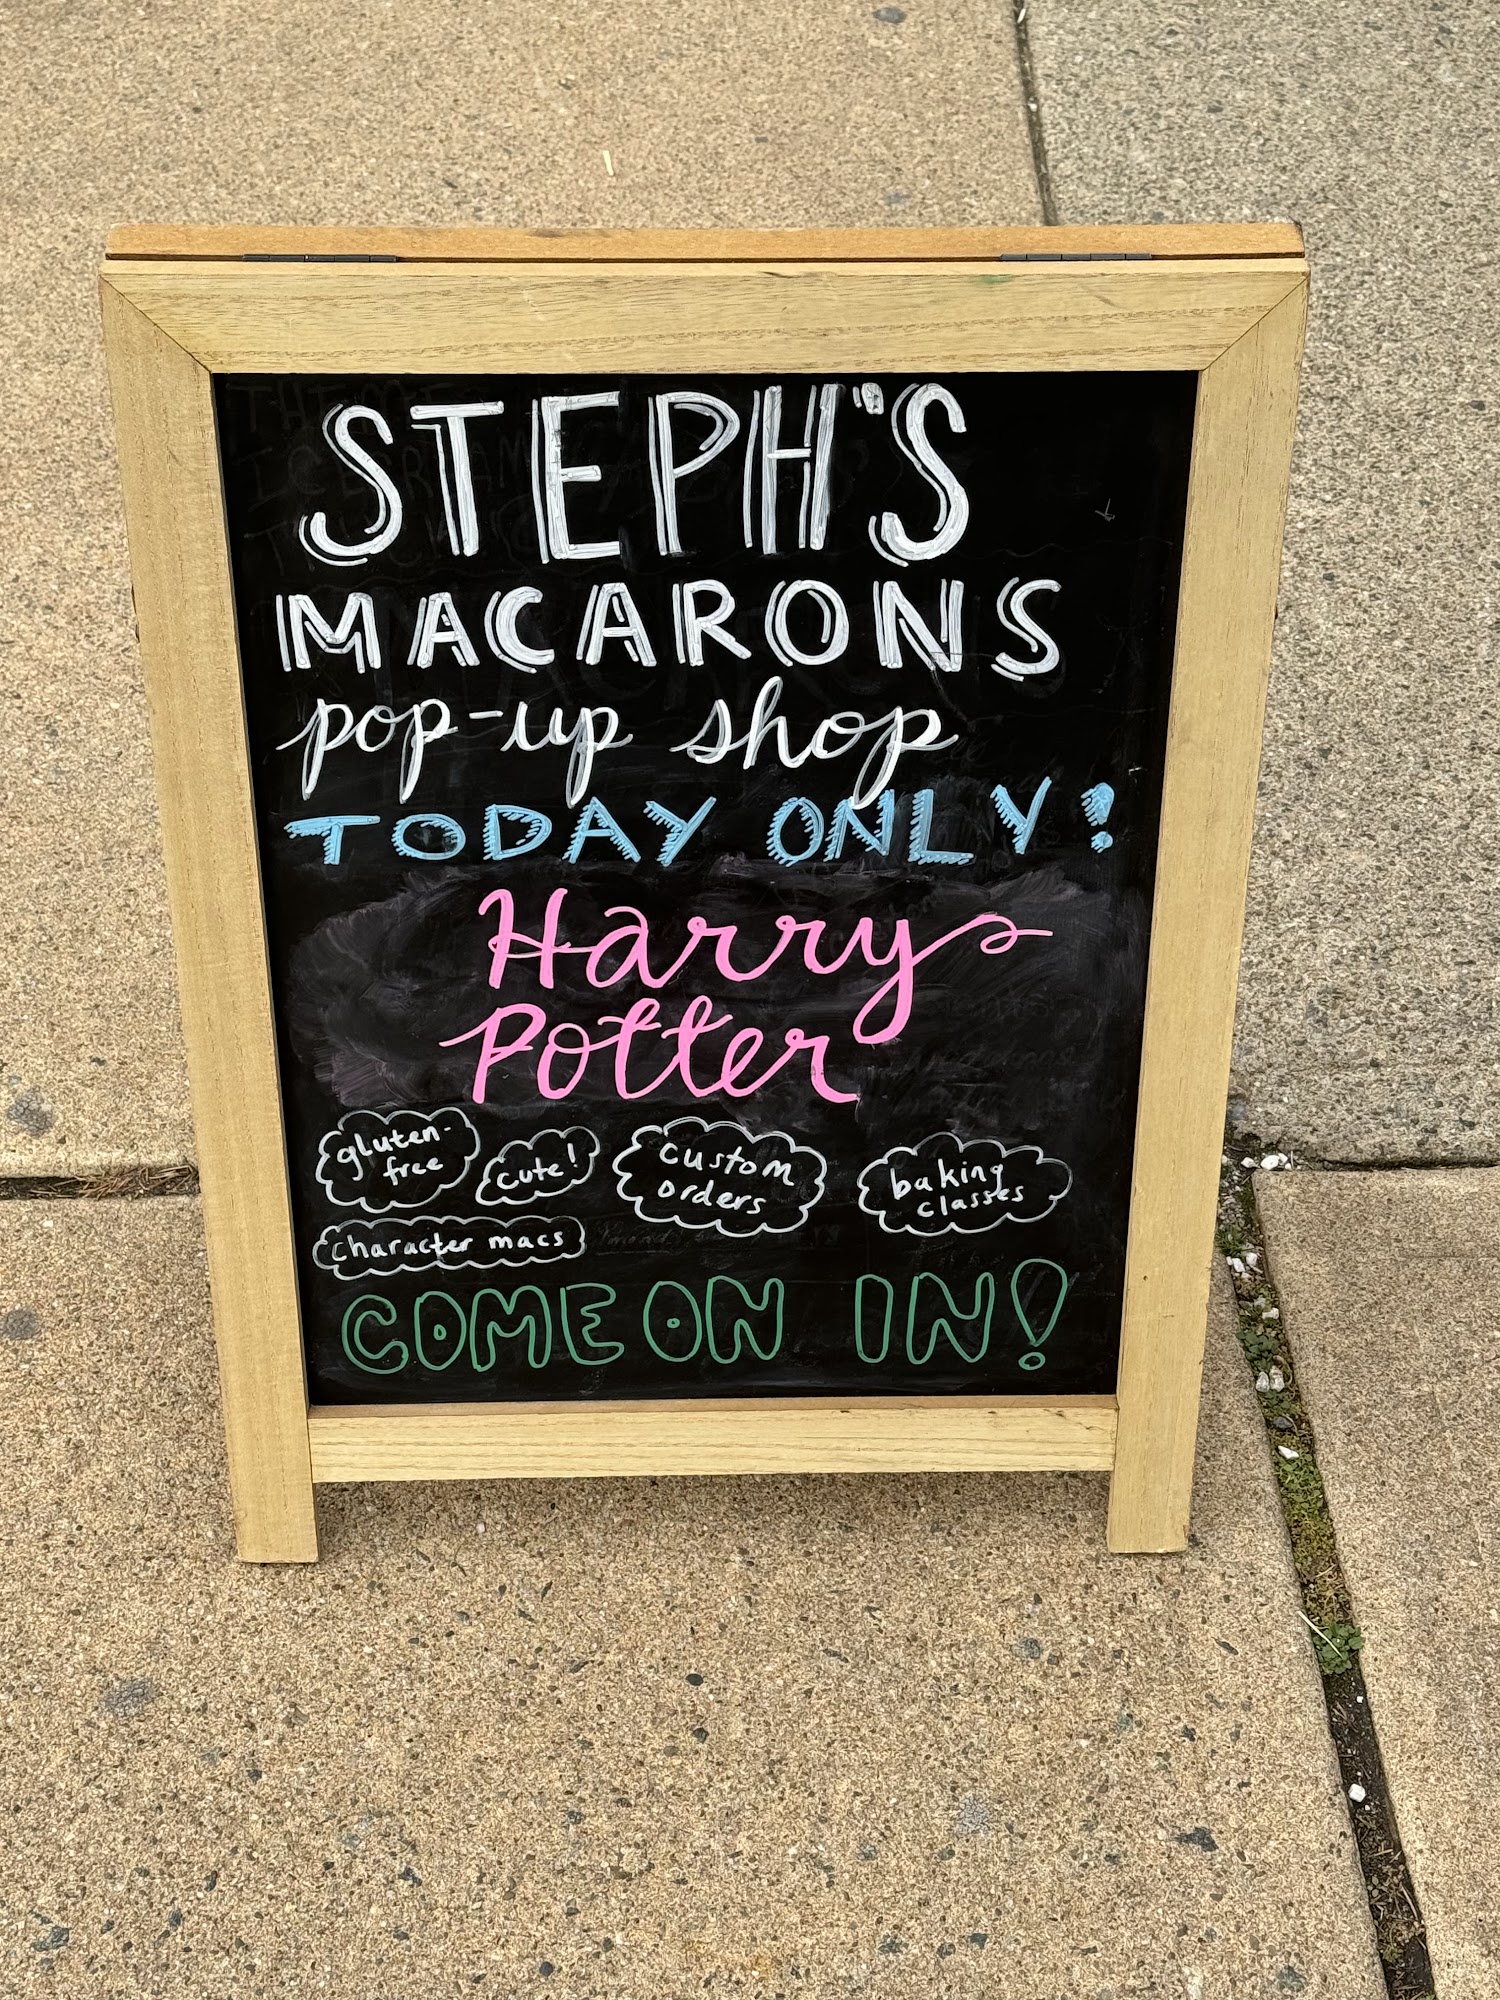 STEPH'S
MACARONS
pop-up shop
TODAY ONLY!
Harry
Potter
gluten-
free
cute!
custom
orders
baking
classes
character macs
COME ON IN!